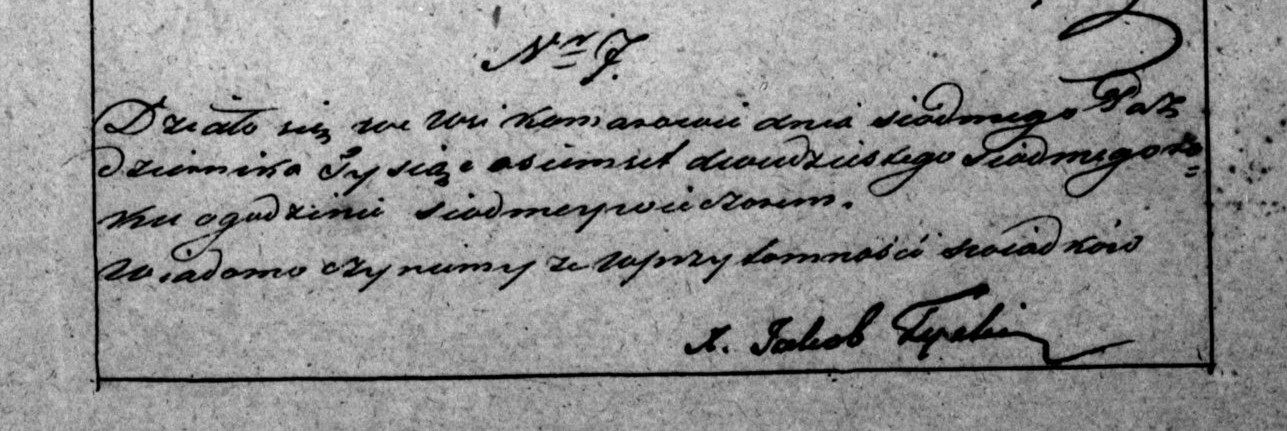 Nr 7.
Działo się we Wsi Komarowie dnia siodmego Paź
dziernika Tysiąc osiemset dwudziestego siodmego Ro=
ku o godzinie siodmey wieczorem.
Wiadomo czyniemy ze w przytomności swiadków
X. Jakob